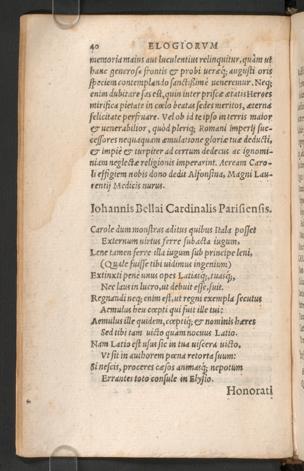 40 ELOGIORVM
memoria maius aut luculentius relinquitur, quàm ut
hanc generosæ frontis & probi ueræq; augusti oris
speciem contemplando sanctissimè ueneremur. Neq;
enim dubitare fas est, quin inter priscæ ætatis Heroes
mirifica pietate in cœlo beatas sedes meritos, æterna
felicitate perfruare. Vel ob id te ipso in terris maior
& uenerabilior, quòd pleriq; Romani imperij suc=
cessores nequaquam æmulatione gloriæ tuæ deducti,
& impiè & turpiter ad certum dedecus ac ignomi=
niam neglectæ religionis imperarint. Aeream Caro=
li effigiem nobis dono dedit Alfonsina, Magni Lau=
rentij Medicis nurus.
Iohannis Bellai Cardinalis Parisiensis.
Carole dum monstras aditus quibus Itala posset
Externum uirtus ferre subacta iugum,
Lene tamen ferre illa iugum sub principe leni,
(Quale fuisse tibi uidimus ingenium)
Extinxti pene unus opes Latiasq;, tuasq;,
Nec laus in lucro, ut debuit esse, fuit.
Regnandi neq; enim est, ut regni exempla secutus
Aemulus heu cœpti qui fuit ille tui:
Aemulus ille quidem, cœptiq; & nominis hæres
Sed tibi tam uicto quàm nocuus Latio.
Nam Latio est usus sic in tua uiscera uicto,
Vt sit in authorem pœna retorta suum:
Si nescis, proceres cæsos animasq; nepotum
Errantes toto consule in Elysio.
Honorati